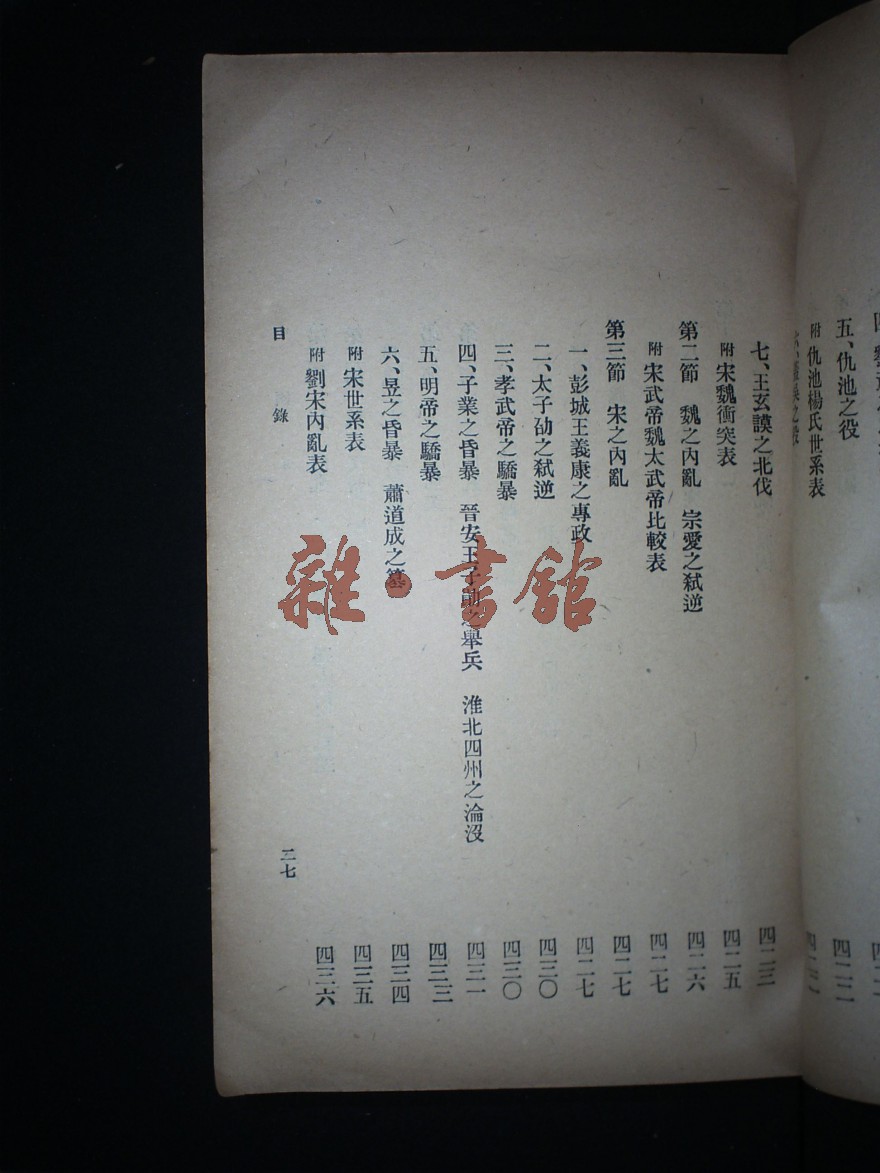 五、仇池之役 四二二
附 仇池楊氏世系表
七、王玄謨之北伐 四二三
附 宋魏衝突表 四二五
第二節 魏之內亂 宗愛之弒逆 四二六
附 宋武帝魏太武帝比較表 四二七
第三節 宋之內亂 四二七
一、彭城王義康之專政 四二七
二、太子劭之弒逆 四三〇
三、孝武帝之驕暴 四三〇
四、子業之昏暴 晉安王子勛之舉兵 淮北四州之淪沒 四三一
五、明帝之驕暴 四三三
六、昱之昏暴 蕭道成之篡 四三四
附 宋世系表 四三五
附 劉宋內亂表 四三六
目 錄 二七
雜·書館